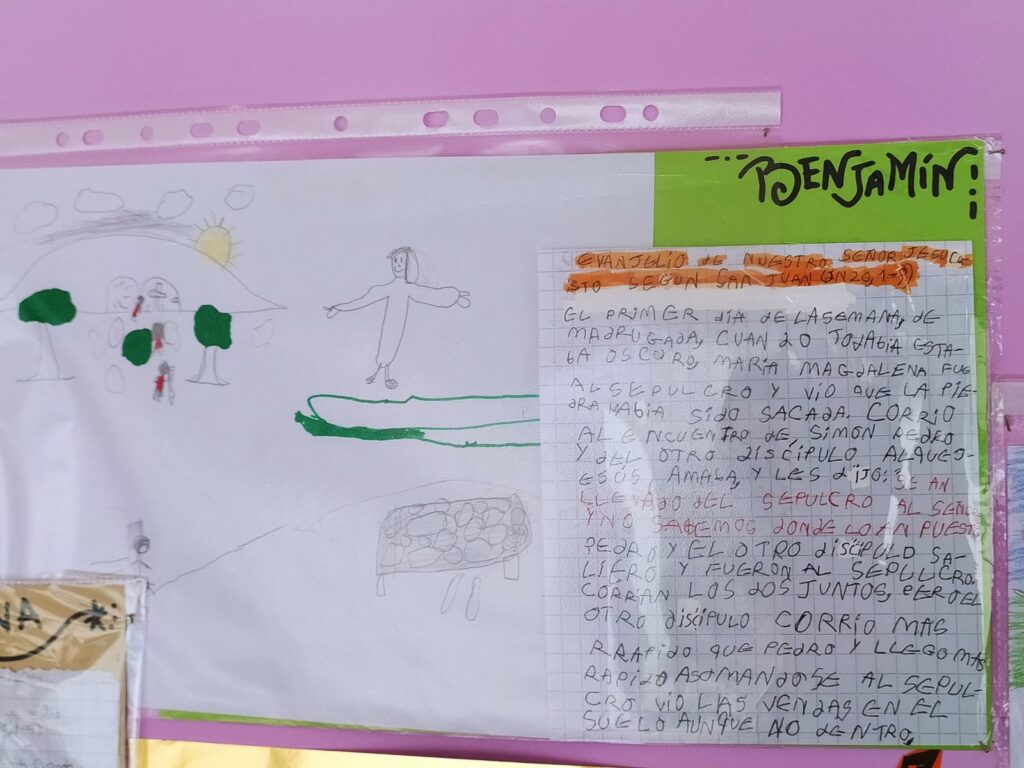 BENJAMÍN
EVANJELIO de NUESTRO SEÑOR JESUCRI
STO SEGÚN SAN JUAN (JN 20, 1-9)
EL PRIMER día dE LA SEMANA, dE
MADRUGADA, CUANDO TODABIA ESTA-
BA OSCURO, MARIA MAGDALENA FUE
AL SEPULCRO Y VIO QUE LA PIE-
DRA HABIA SIDO SACADA. CORRIO
AL ENCUENTRO DE SIMON PEDRO
Y DEL OTRO díscípulo AL QUE J-
ESÚS AMABA, Y LES dijo: SE AN
LLEVADO DEL SEPULCRO AL SEÑOR
Y NO SABEMOS DONDE LO AN PUESTO
PEDRO Y EL OTRO discípulo SA-
LIERO Y FUERON AL SEPULCRO.
CORRIAN LOS DOS JUNTOS, PERO EL
OTRO discípulo CORRIO MAS
RRAPIDO QUE PEDRO Y LLEGO MAS
RAPIDO ASOMANDOSE AL SEPUL-
CRO VIO LAS VENDAS EN EL
SUELO AUNQUE NO DENTRO,
NA